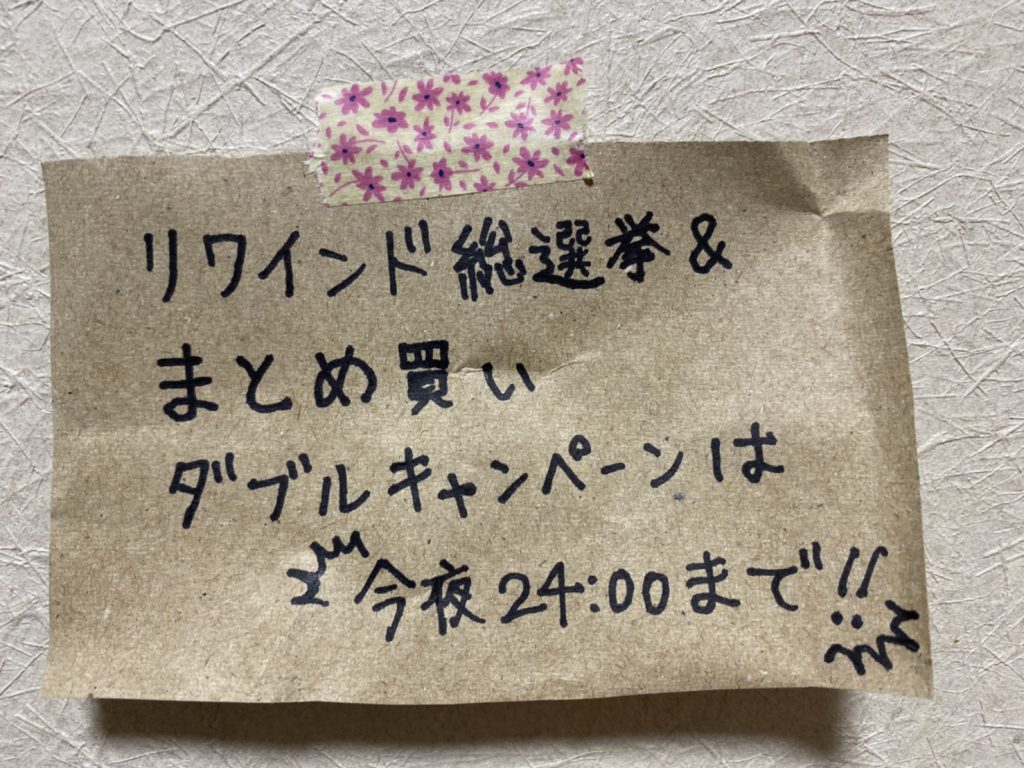 リワインド総選挙&
まとめ買い
ダブルキャンペーンは
今夜24:00まで!!